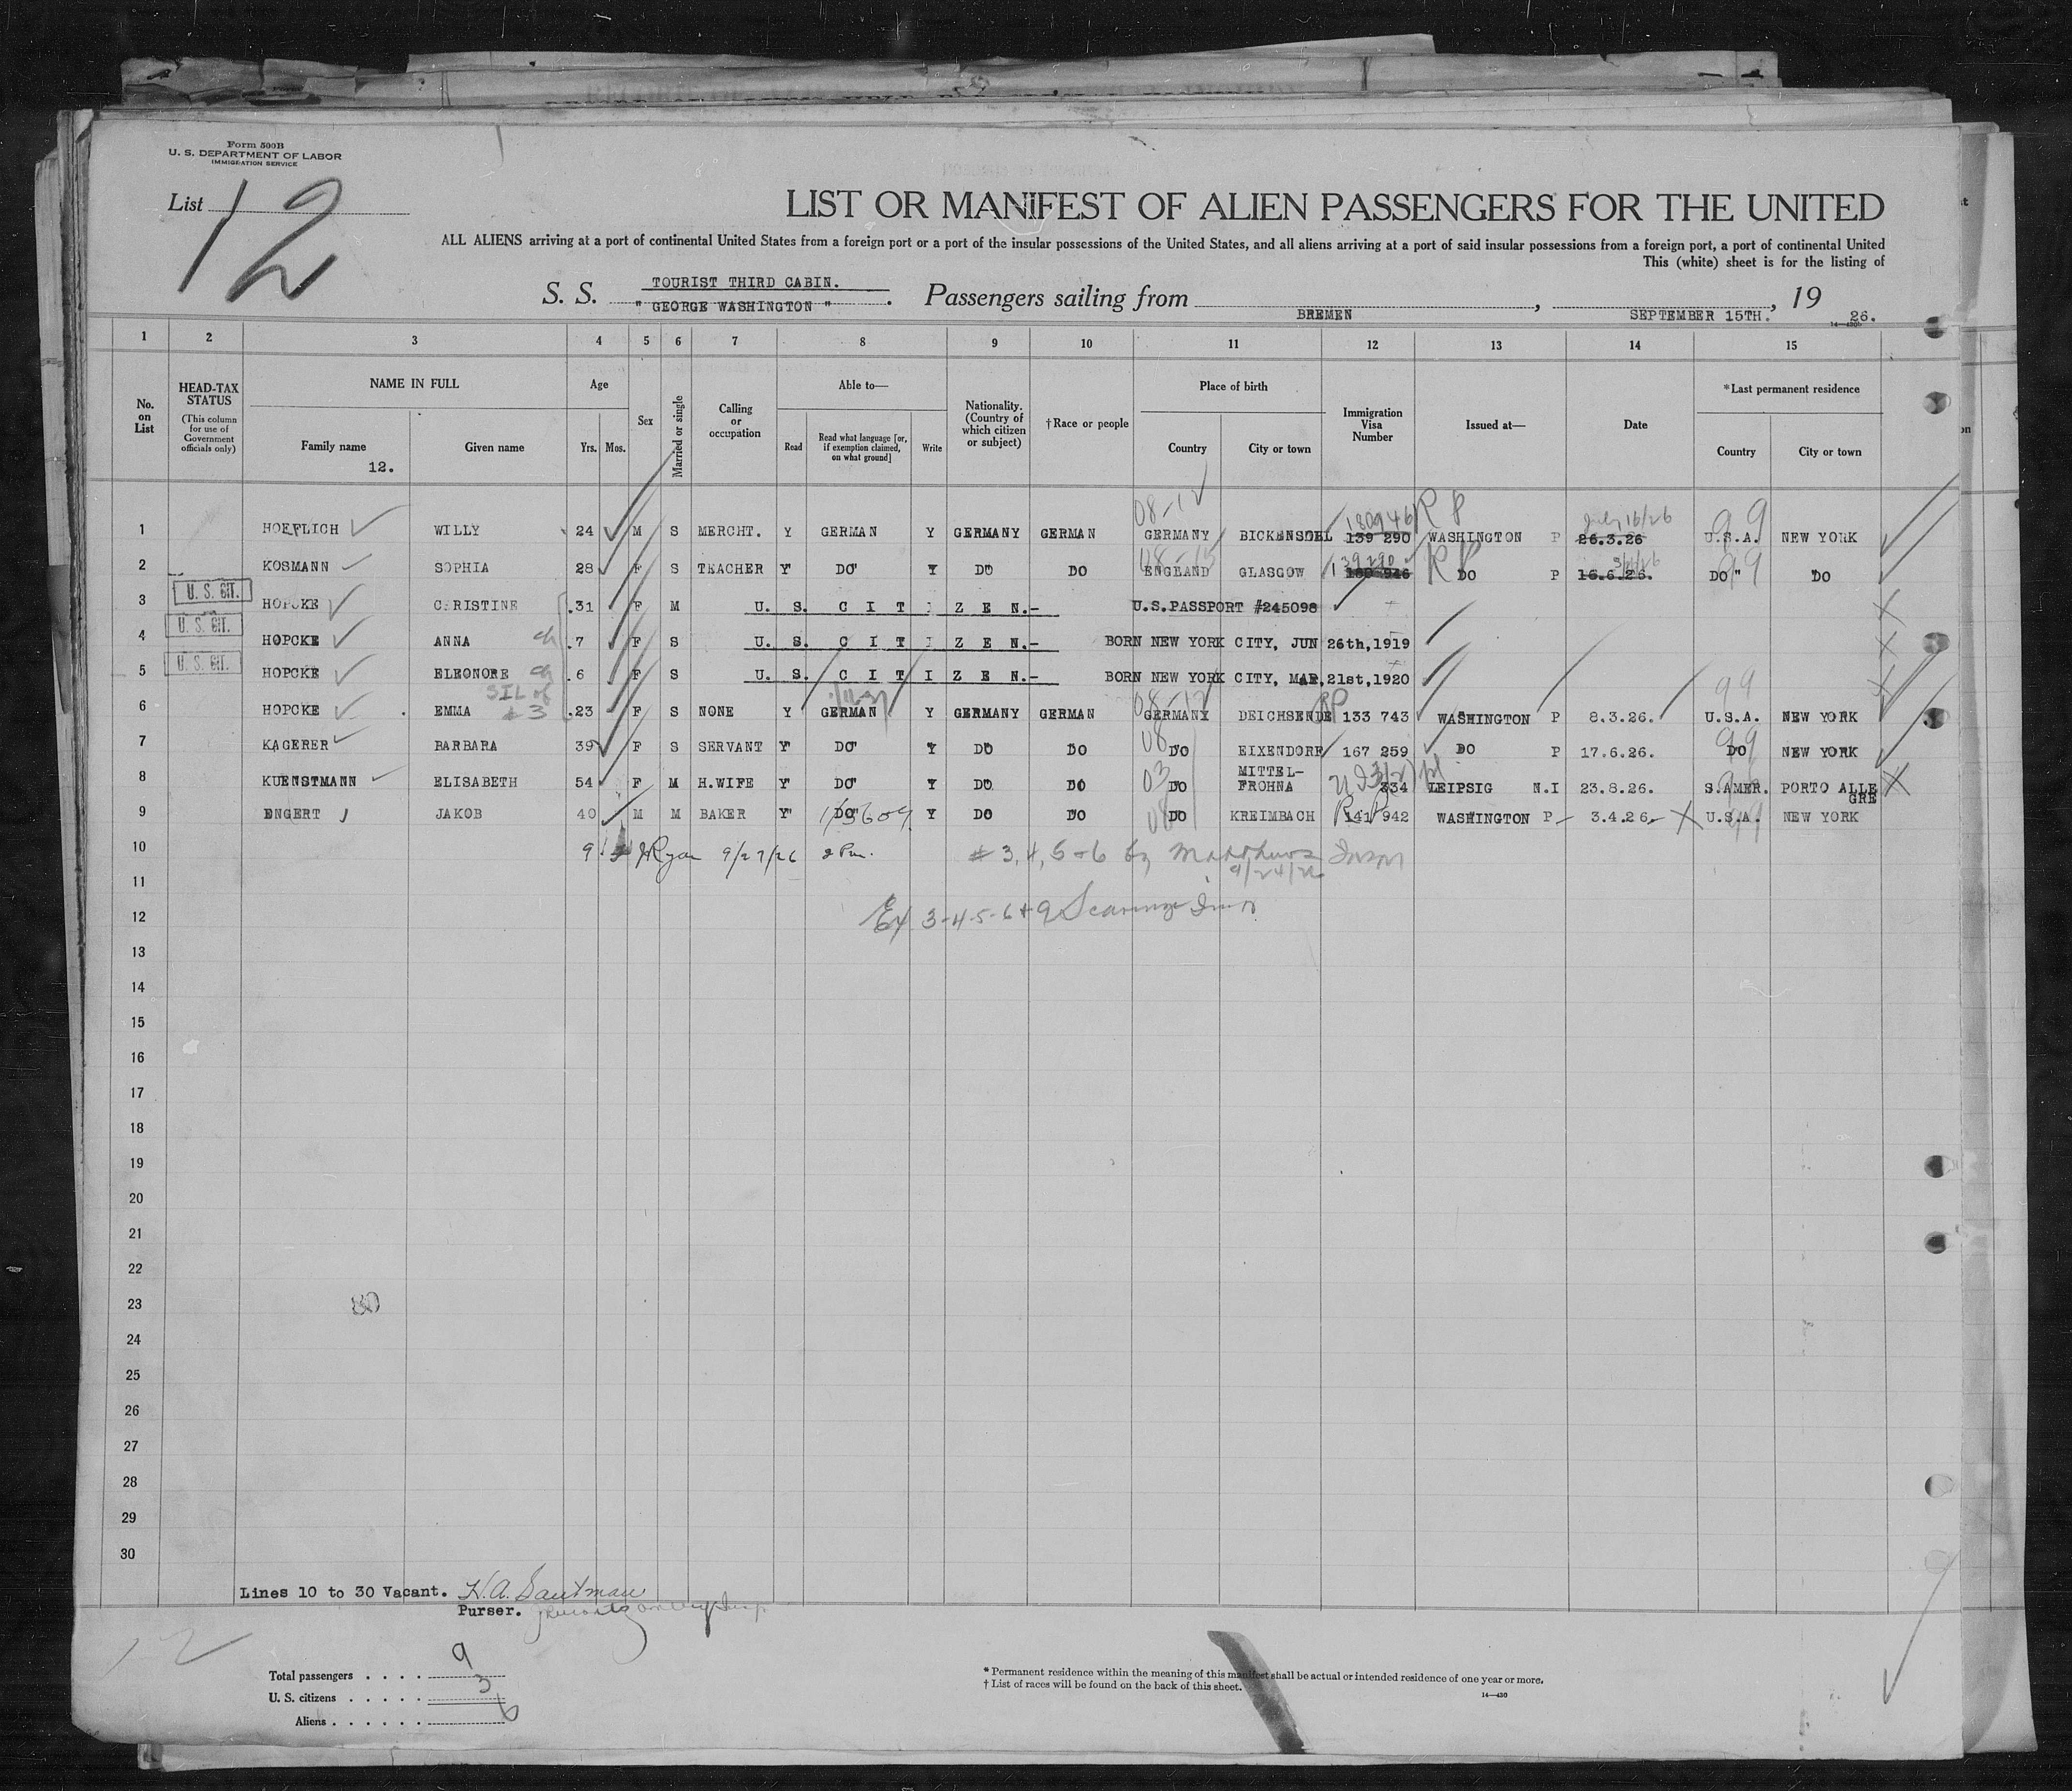 Form 500B
U. S. DEPARTMENT OF LABOR
IMMIGRATION SERVICE
List 12
LIST OR MANIFEST OF ALIEN PASSENGERS FOR THE UNITED
ALL ALIENS arriving at a port of continental United States from a foreign port or a port of the insular possessions of the United States, and all aliens arriving at a port of said insular possessions from a foreign port, a port of continental United
This (white) sheet is for the listing of
TOURIST THIRD CABIN.
S. S. " GEORGE WASHINGTON ". Passengers sailing from BREMEN, SEPTEMBER 15TH., 1926.
14—430b
1 2 3 4 5 6 7 8 9 10 11 12 13 14 15
No. on List
HEAD-TAX STATUS (This column for use of Government officials only)
NAME IN FULL
Family name 12.
Given name
Age
Yrs. Mos.
Sex
Married or single
Calling or occupation
Able to—
Read
Read what language [or, if exemption claimed, on what ground]
Write
Nationality. (Country of which citizen or subject)
†Race or people
Place of birth
Country
City or town
Immigration Visa Number
Issued at—
Date
*Last permanent residence
Country
City or town
08-12 180946 RP July 16/26 99
1 HOEFLICH WILLY 24 M S MERCHT. Y GERMAN Y GERMANY GERMAN GERMANY BICKENSOHL 139 290 WASHINGTON P 26.3.26 U.S.A. NEW YORK
139290 RP 99
2 KOSMANN SOPHIA 28 F S TEACHER Y" DO" Y DO DO ENGLAND GLASGOW 180 946 DO P 16.6.26. DO " "DO
U. S. CIT.
3 HOPCKE CHRISTINE 31 F M U. S. C I T I Z E N.- U.S.PASSPORT #245098
U. S. CIT.
4 HOPCKE ANNA ch 7 F S U. S. C I T I Z E N.- BORN NEW YORK CITY, JUN 26th,1919
U. S. CIT.
5 HOPCKE ELEONORE ch 6 F S U. S. C I T I Z E N.- BORN NEW YORK CITY, MAR,21st,1920
SIL of #3 08-12 RP 99
6 HOPCKE EMMA 23 F S NONE Y GERMAN Y GERMANY GERMAN GERMANY DEICHSENDE 133 743 WASHINGTON P 8.3.26. U.S.A. NEW YORK
08 99
7 KAGERER BARBARA 39 F S SERVANT Y" DO" Y DO DO DO EIXENDORF 167 259 DO P 17.6.26. DO NEW YORK
03
8 KUENSTMANN ELISABETH 54 F M H.WIFE Y" DO" Y DO DO DO MITTEL-FROHNA 334 LEIPSIG N.I 23.8.26. S.AMER. PORTO ALLEGRE
08 RP 99
9 ENGERT JAKOB 40 M M BAKER Y" DO" Y DO DO DO KREIMBACH 141 942 WASHINGTON P 3.4.26. U.S.A. NEW YORK
10 JRyan 9/27/26 2 Pm. # 3, 4, 5 & 6 by Matthews Insp
9/24/26
11
12 Ex 3-4-5-6+9
13
14
15
16
17
18
19
20
21
22
23
24
25
26
27
28
29
30
Lines 10 to 30 Vacant.
Purser.
12
Total passengers . . . . 9
U. S. citizens . . . . . 3
Aliens . . . . . . 6
* Permanent residence within the meaning of this manifest shall be actual or intended residence of one year or more.
† List of races will be found on the back of this sheet.
14—430